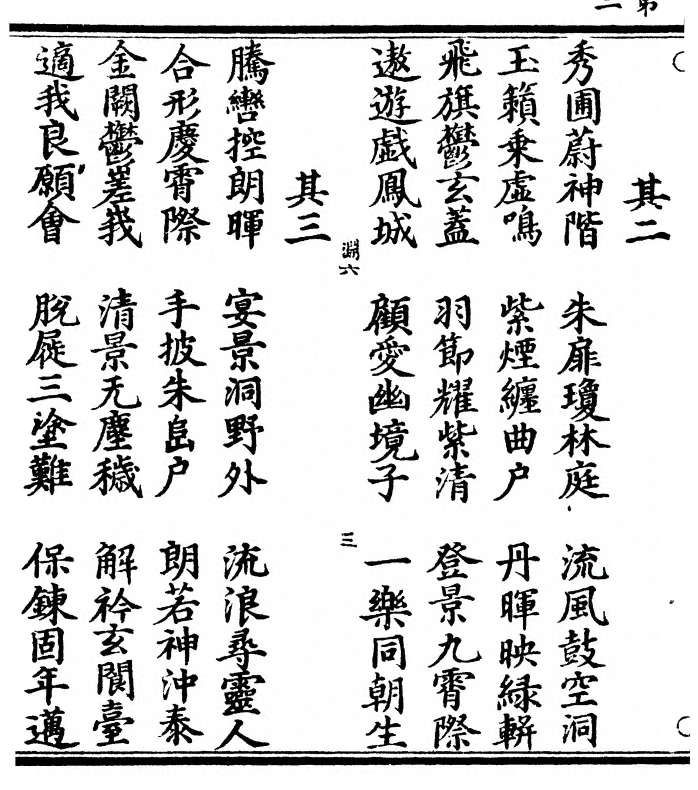 第二
其二
秀圃蔚神階 朱扉瓊林庭 流風鼓空洞
玉籟乗虛鳴 紫煙纏曲户 丹暉映緑軿
飛旗鬱玄蓋 羽節耀紫清 登景九霄際
遨遊戲鳳城 顧愛幽境子 一樂同朝生
淵六 三
其三
騰轡控朗暉 宴景洞野外 流浪尋靈人
合形慶霄際 手披朱島户 朗若神沖泰
金闕鬱嵳我 清景无塵穢 解衿玄閬臺
適我良願會 脫屣三塗難 保鍊固年邁